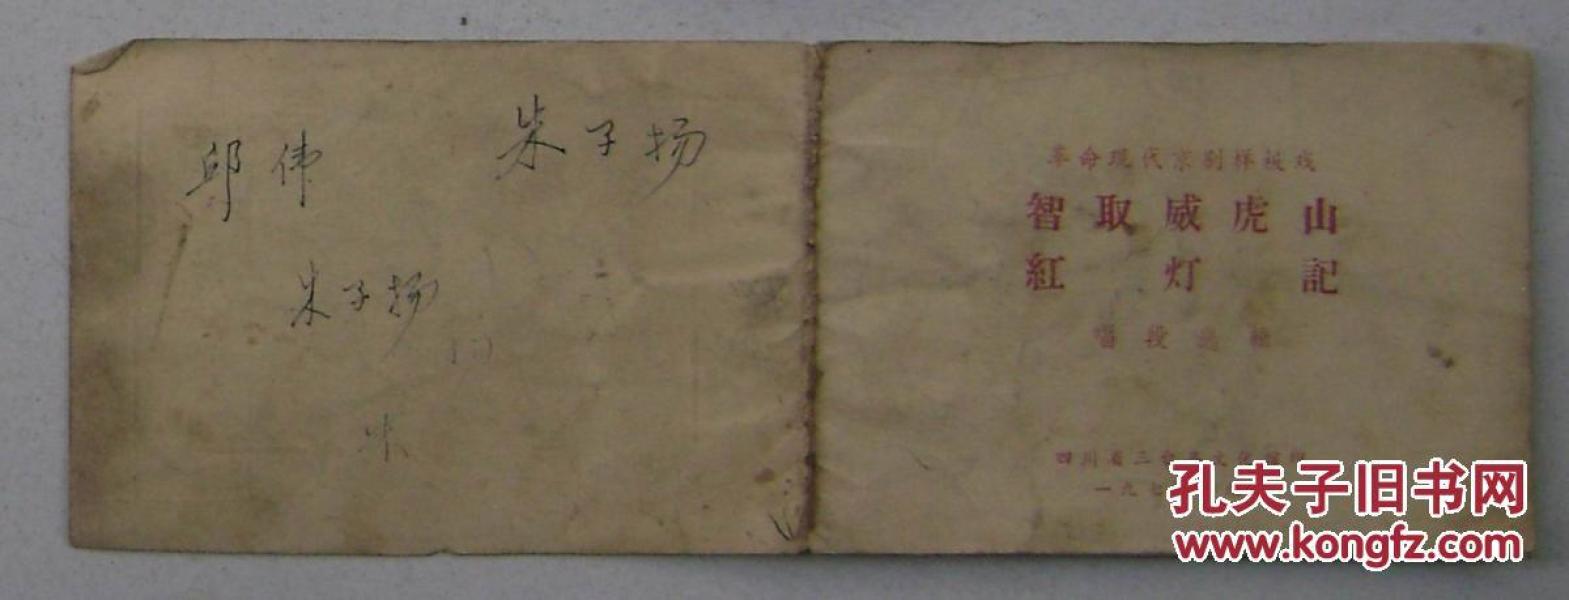 邱伟
朱子扬
朱子扬
革命现代京剧样板戏
智取威虎山
紅灯記
唱段选
四川省三台县文化馆
一九七
孔夫子旧书网
www.kongfz.com